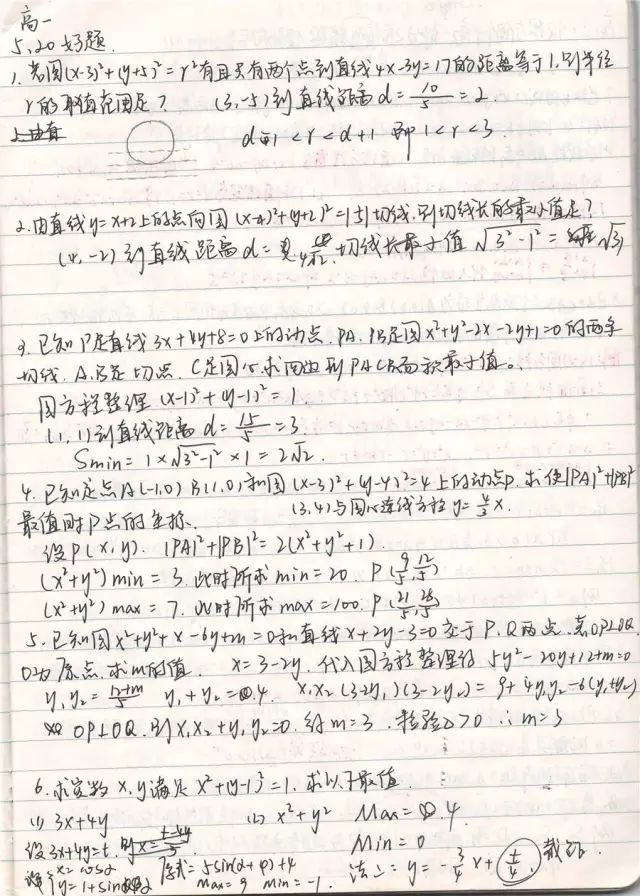 高一
5.20 好题.
1. 若圆(x-3)²+(y+5)²=r²有且只有两个点到直线4x-3y=17的距离等于1.则半径
r的取值范围是? (3,-5)到直线距离 d=10/5=2.
d-1<r<d+1 即 1<r<3.
2.由直线y=x+2上的点向圆(x-4)²+(y+2)²=1引切线.则切线长的最小值是?
(4,-2)到直线距离d= 4√2 切线长最小值
3.已知P是直线3x+4y+8=0上的动点.PA.PB是圆x²+y²-2x-2y+1=0的两条
切线.A.B是切点.C是圆心.求四边形PACB面积最小值。
圆方程整理(x-1)²+(y-1)²=1
(1,1)到直线距离d=15/5=3.
Smin=1×√3²-1²×1=2√2.
4.已知定点A(-1,0)B(1,0)和圆(x-3)²+(y-4)²=4上的动点P.求使|PA|²+|PB|²
最值时P点的坐标. (3,4)与圆心连线方程y=4/3x.
设P(x,y). |PA|²+|PB|²=2(x²+y²+1)
(x²+y²)min=3.此时所求min=20 P(9/5,12/5)
(x²+y²)max=7.此时所求max=100.P(21/5,28/5)
5.已知圆x²+y²+x-6y+m=0和直线x+2y-3=0交于P.Q两点.若OP⊥OQ
O为原点.求m的值. x=3-2y.代入圆方程整理得 5y²-20y+12+m=0
y₁y₂=12+m/5 y₁+y₂=4. x₁x₂(3-2y₁)(3-2y₂)=9+4y₁y₂-6(y₁+y₂)
OP⊥OQ.则x₁x₂+y₁y₂=0.得m=3.检验△>0 ∴m=3
6.求实数x.y满足x²+(y-1)²=1.求以下最值.
(1) 3x+4y (2) x²+y² Max=4.
设3x+4y=t. Min=0
设{x=cosα y=1+sinα 原式=5sin(α+φ)+4 法二:y=-3/4x+t/4 截距.
Max=9 min=-1.